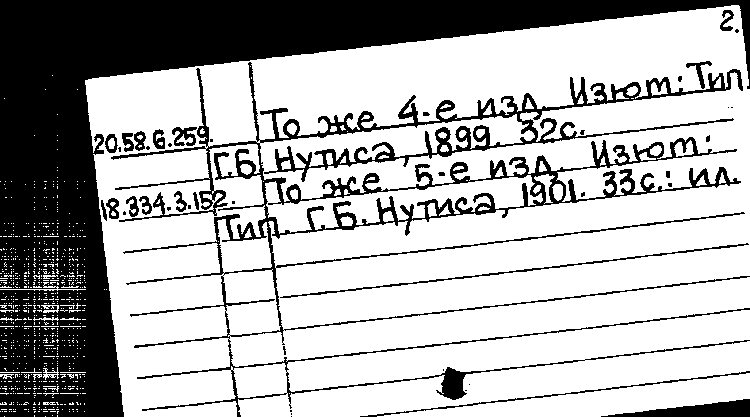 2.
20.58.6.259. То же 4-е изд. Изюм: Тип.
Г.Б. Нутиса, 1899. 32с.
18.334.3.152. То же 5-е изд. Изюм:
Тип. Г.Б. Нутиса, 1901. 33с.: ил.